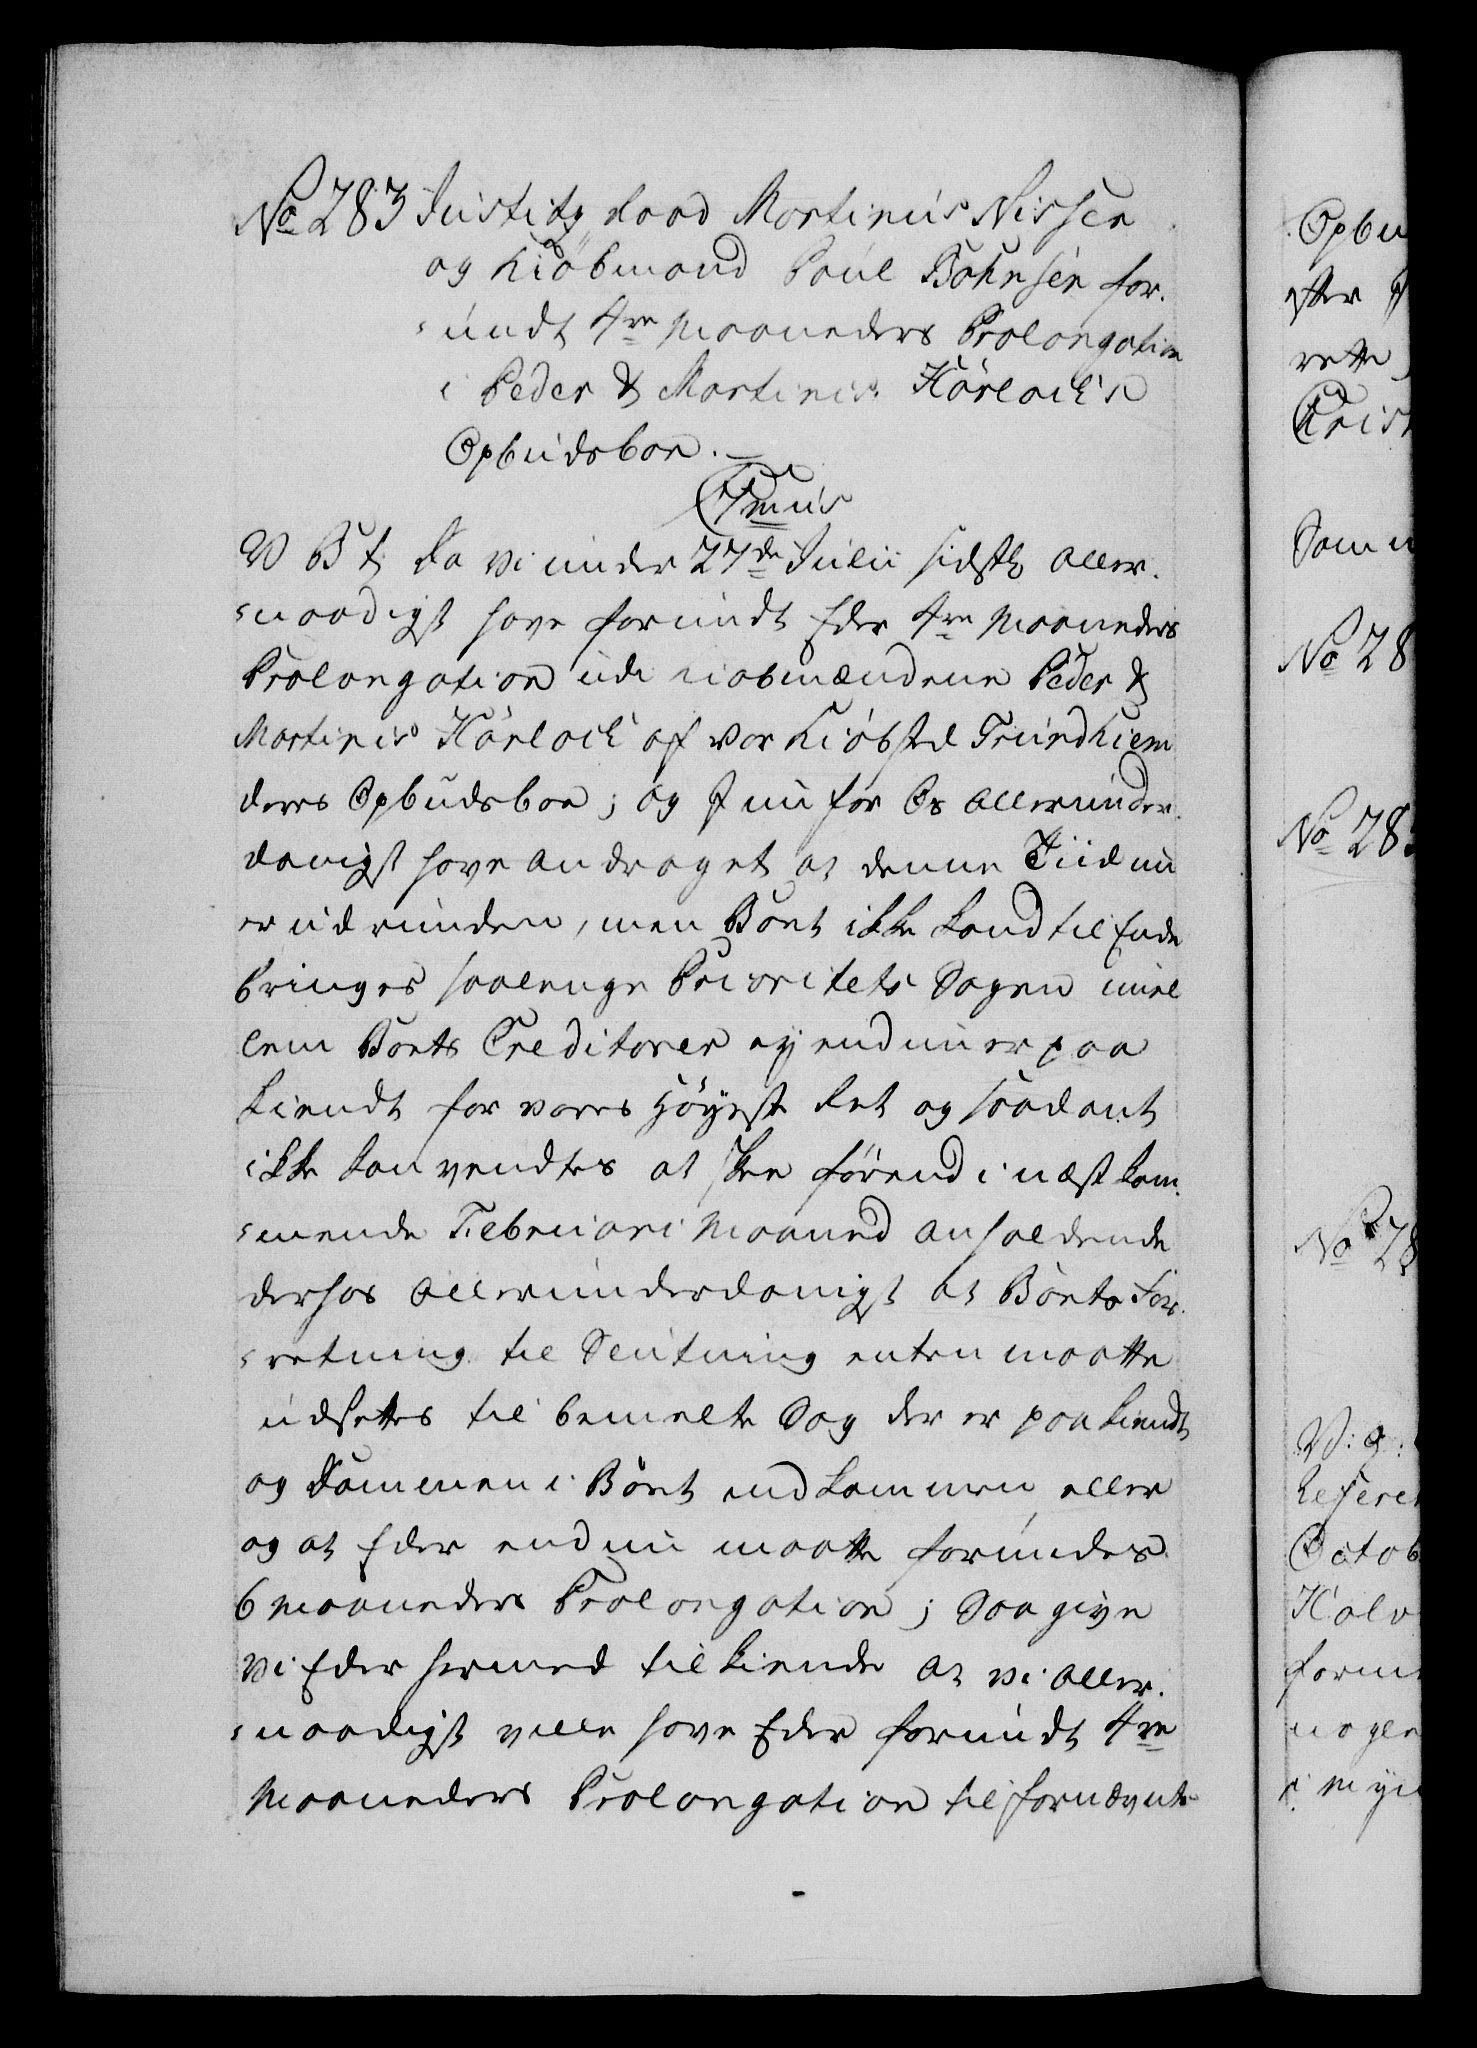 No 283 Justitz Raad Martinus Nissen
og Kiöbmand Paul Bohnsen for-
undt 4re Maaneders Prolongation
i Peder & Martinus Hörlock's
Opbudsboe.
C 7mus
V B t: Da vi under 27de Julii sidstl. aller-
naadigst have forundt Eder 4re Maaneders
Prolongation udi Kiobmændene Peder &
Martinus Hörlock af vor Kiöbsted Trundhiem
deres Opbudsboe; og I nu for Os allerunder-
danigst have andraget at denne Tiid nu
er udrunden, men Boet ikke kand til Ende
bringes saalenge Prioritets Sagen imel
lem Boets Creditorer ey endnu er paa
kiendt for vores Höyeste Ret og saadant
ikke kan ventes at skee förend i næstkom-
mende Februari Maaned anholdende
derhos allerunderdanigst at Boets For-
retning til Slutning enten maatte
udsettes til bemelte Sag der er paakiendt
og Dommen i Boet indkommen eller
og at Eder endnu maatte forundes
6 Maaneders Prolongation; Saa give
vi Eder hermed tilkiende at vi aller-
naadigst ville have Eder forundt 4re
Maaneders Prolongation til fornævnte
Opbu
efter
rette
Som
No 28
No 283
No 28
V: g:
Octob